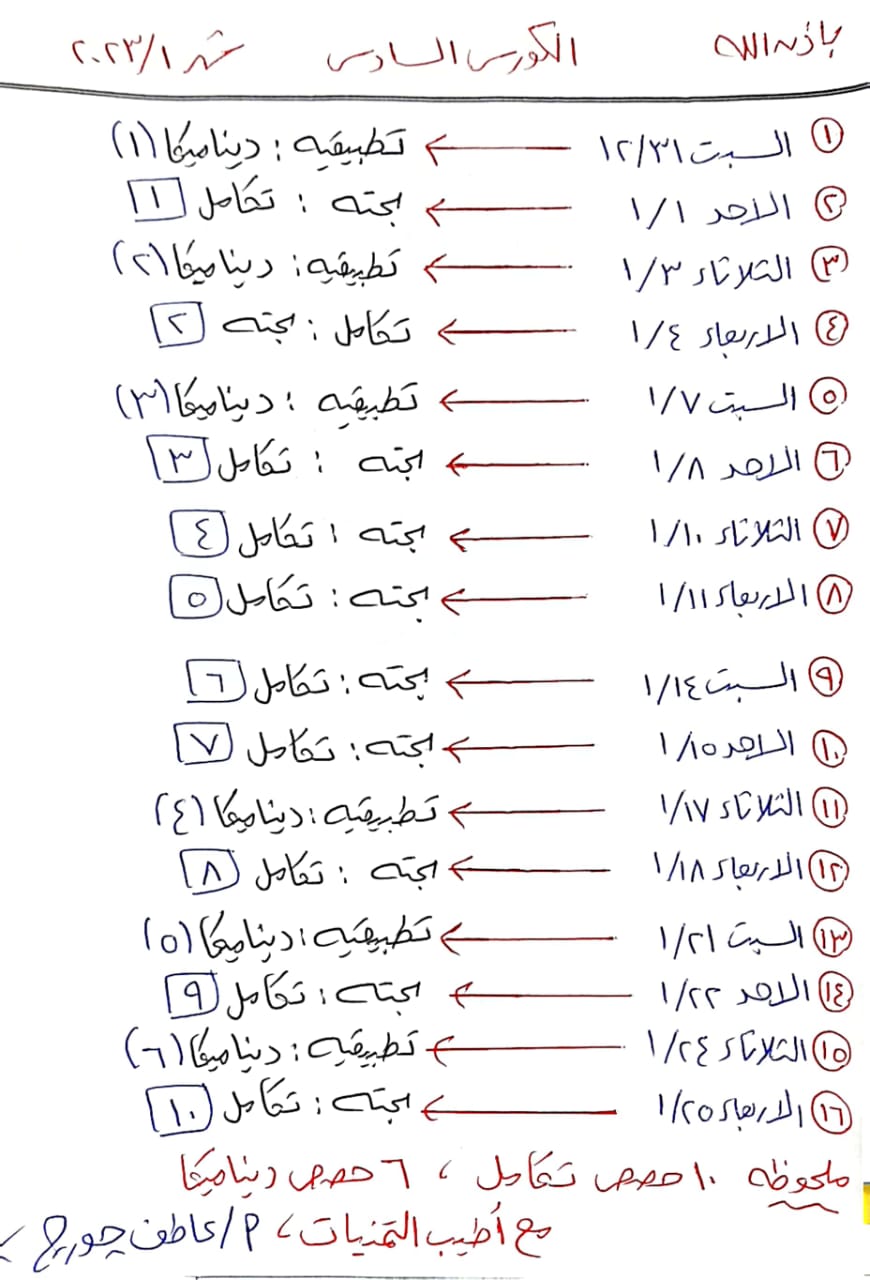 باذن الله الكورس السادس شهر ٢٠٢٣/١
١ السبت ١٢/٣١ ← تطبيقيه : ديناميكا (١)
٢ الاحد ١/١ ← بحته : تكامل ١
٣ الثلاثاء ١/٣ ← تطبيقيه : ديناميكا (٢)
٤ الاربعاء ١/٤ ← تكامل : بحته ٢
٥ السبت ١/٧ ← تطبيقيه : ديناميكا (٣)
٦ الاحد ١/٨ ← بحته : تكامل ٣
٧ الثلاثاء ١/١٠ ← بحته : تكامل ٤
٨ الاربعاء ١/١١ ← بحته : تكامل ٥
٩ السبت ١/١٤ ← بحته : تكامل ٦
١٠ الاحد ١/١٥ ← بحته : تكامل ٧
١١ الثلاثاء ١/١٧ ← تطبيقيه : ديناميكا (٤)
١٢ الاربعاء ١/١٨ ← بحته : تكامل ٨
١٣ السبت ١/٢١ ← تطبيقيه : ديناميكا (٥)
١٤ الاحد ١/٢٢ ← بحته : تكامل ٩
١٥ الثلاثاء ١/٢٤ ← تطبيقيه : ديناميكا (٦)
١٦ الاربعاء ١/٢٥ ← بحته : تكامل ١٠
ملحوظه ١٠ حصص تكامل ، ٦ حصص ديناميكا
مع أطيب التمنيات ، م/عاطف جورج